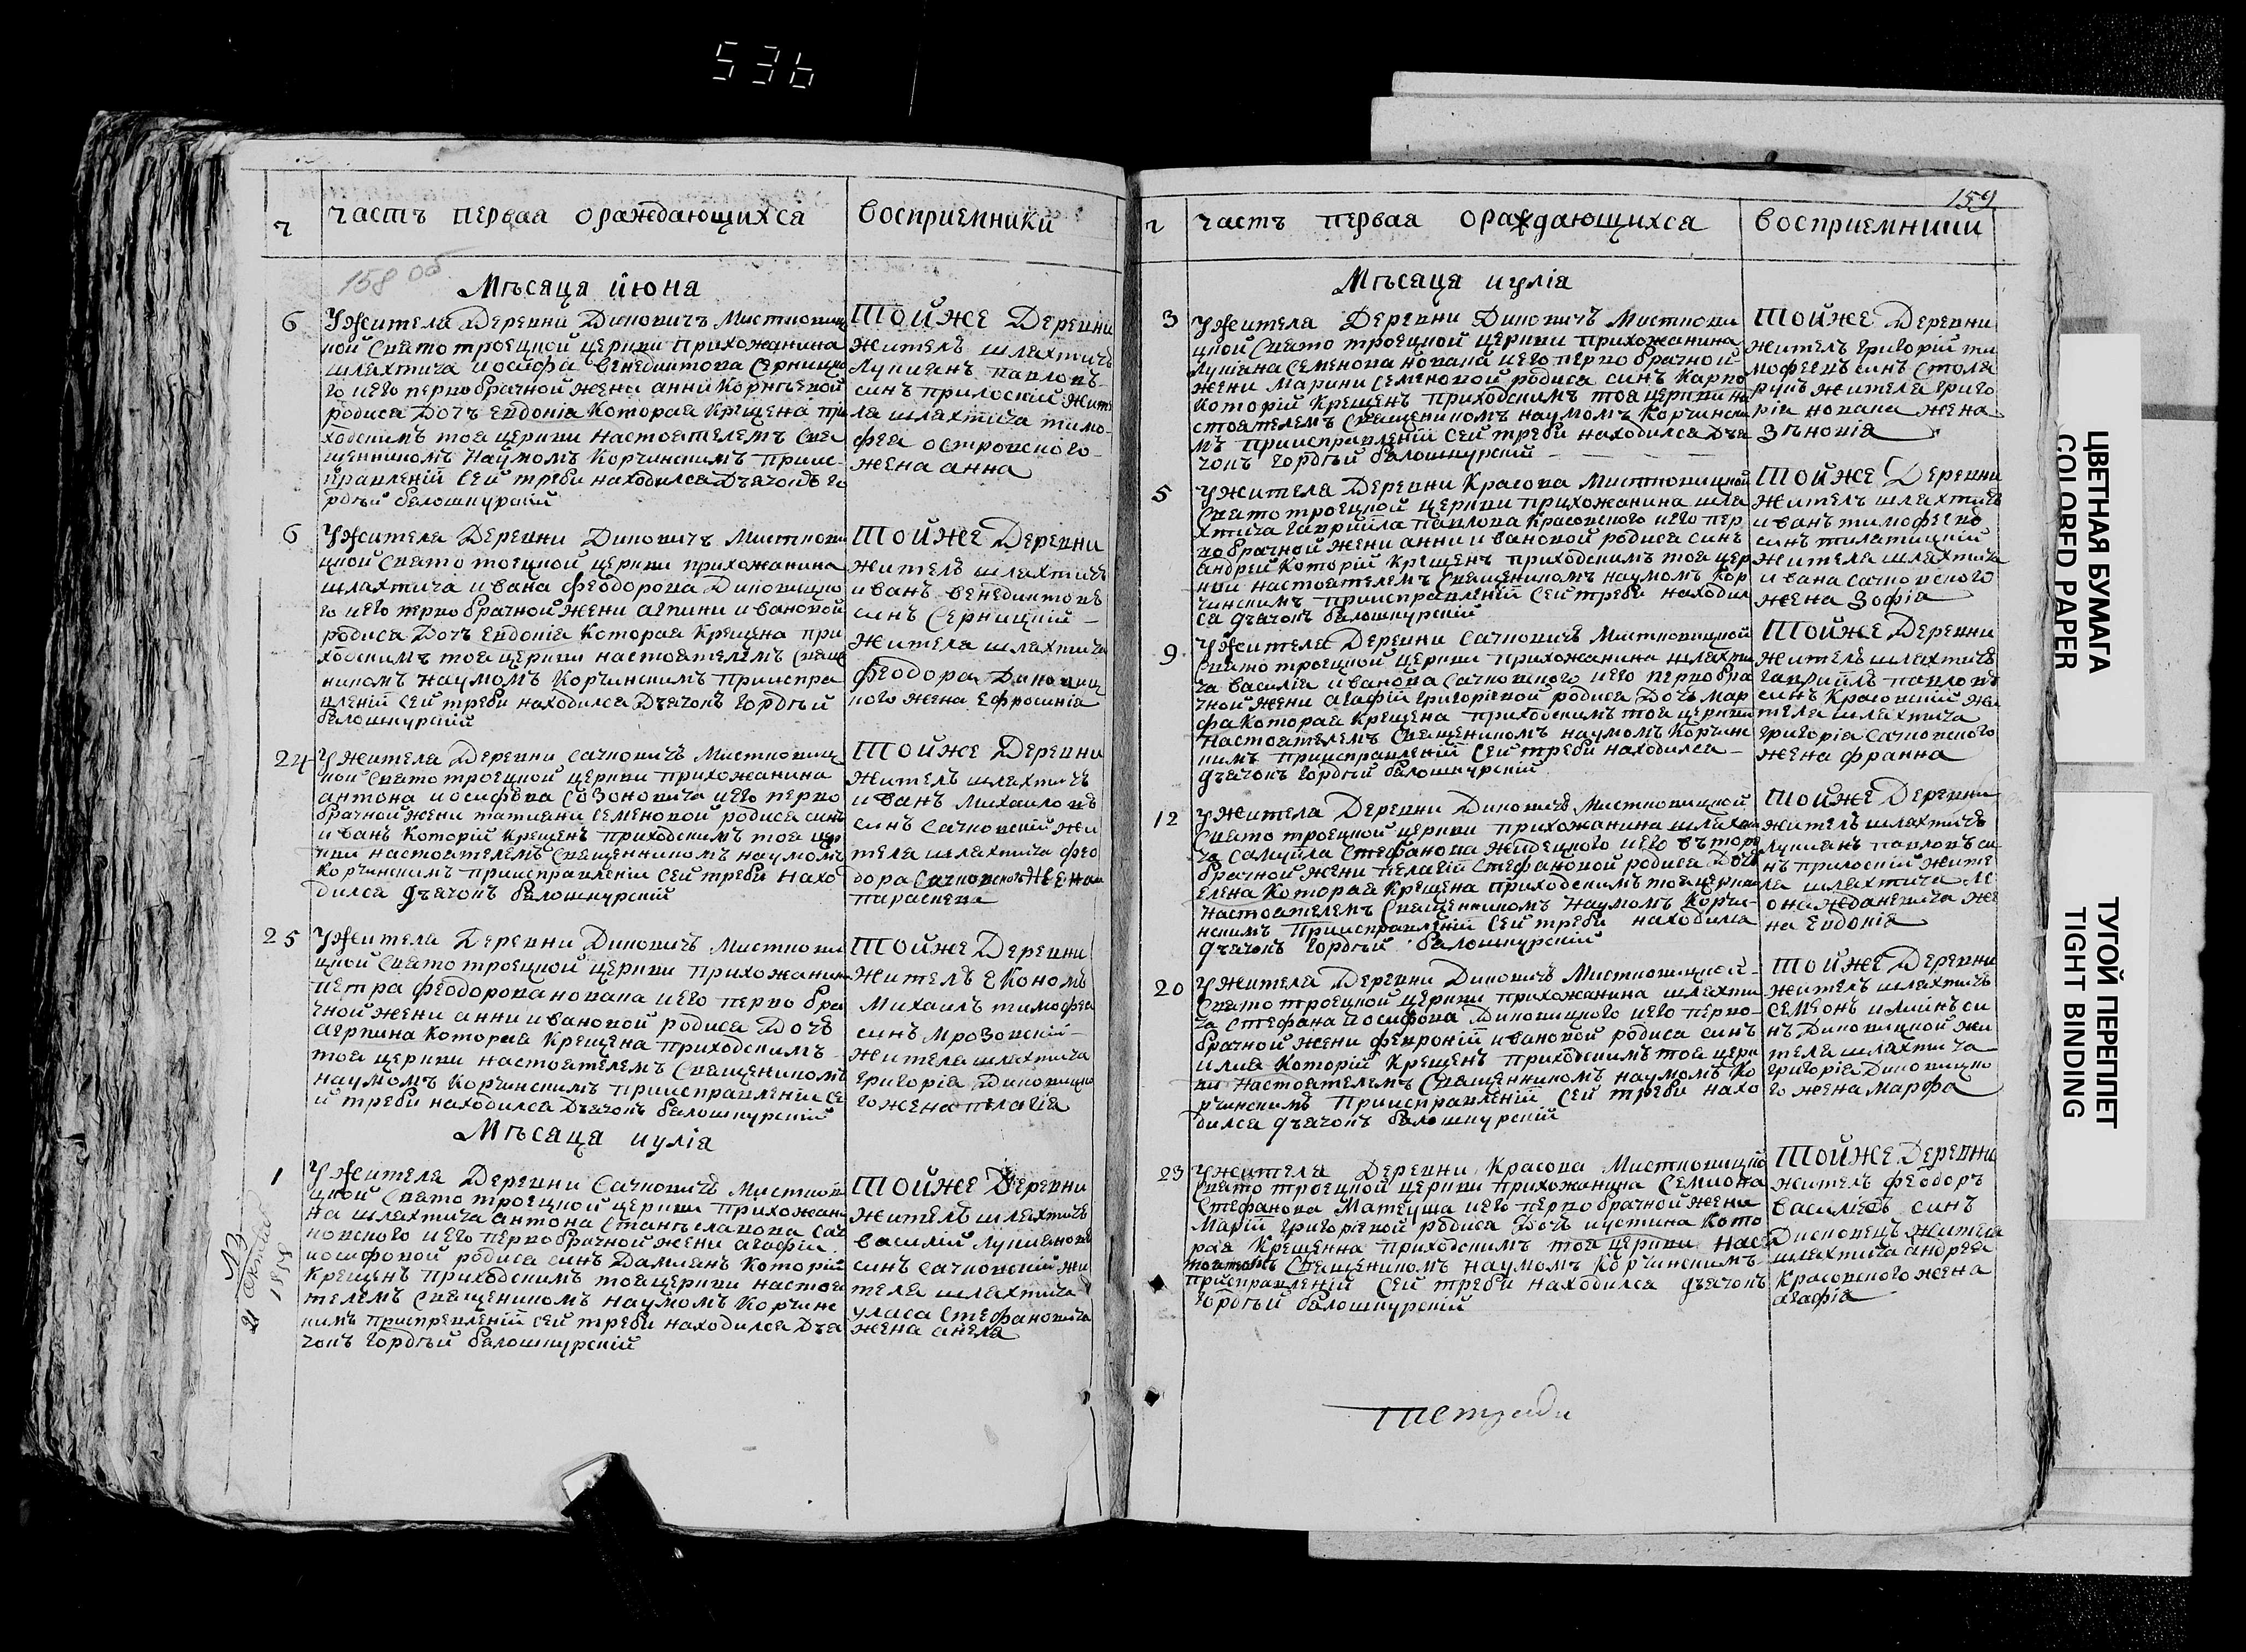 536
158 об
ч
часть первая ораждающихся
восприемники
Мѣсаца июна
6
Ужителя Деревни Диковичъ Мисткови
цкой Свято троецкой церкви прихожанина
шляхтича иосифа венедиктова Серницко
го иего первобрачной жени анни Корнѣевой
родися Дочъ Евдокіа Которая Крещена при
ходскимъ тоя церкви настоятелемъ Свя
щенникомъ Наумомъ Корчинскимъ приис
правленій Сей треби находился Дъячокъ Го
рдѣй балошкурскій
Тойже Деревни
жителъ шляхтичъ
Лукиянъ павловъ
синъ прилоский жите
ля шляхтича тимо
фея островского
жена анна
6
Ужителя Деревни Диковичъ Мисткови
цкой Свято тоецкой церкви прихожанина
шляхтича ивана феодорова Диковицко
го иего перво брачной жени агпини ивановой
родися Дочъ Евдокіа Которая Крещена при
ходскимъ тоя церкви настоятелемъ Свяще
никомъ Наумомъ Корчинскимъ приисправ
вленій Сей треби находился Дъячокъ Гордѣй
балошкурскій
Тойже Деревни
жителъ шляхтичъ
иванъ венедиктовъ
синъ Серницкій
жителя шляхтича
феодора Диковиц
кого жена Ефросиніа
24
Ужителя Деревни Сачковичъ Мистковиц
кой Свято троецкой церкви прихожанина
антона иосифова Созоновича иего перво
брачной жени татиани Семеновой родися синъ
иванъ Которій Крещенъ приходскимъ тоя цер
кви настоятелемъ Священникомъ наумомъ
Корчинскимъ приисправленіи Сей треби нахо
дился дъячокъ балошкурскій
Тойже Деревни
жителъ шляхтичъ
иванъ Михаиловъ
синъ Сачковскій жи
теля шляхтича фео
дора Сачковского жена
параскева
25
Ужителя Деревни Диковичъ Мисткови
цкой Свято троецкой церкви прихожанин
петра феодорова новака иего перво бра
чной жени анни ивановой родися Дочъ
агрпина Которая Крещена приходскимъ
тоя церкви настоятелемъ Священикомъ
наумомъ Корчинскимъ приисправленіи Се
й треби находился Дъячокъ балошкурскій
Тойже Деревни
Жителъ Економъ
Михаилъ тимофея
синъ Мрозовскій
жителя шляхтича
григоріа Диковицко
го жена пелагіа
Мѣсаца иуліа
1
Ужителя Деревни Сачковичъ Мисткови
цкой Свято троецкой церкви прихожани
на шляхтича антона Станѣславова Сач
ковского иего первобрачной жени агафіи
иосифовой родися синъ Дамианъ Которій
Крещенъ приходскимъ тоя церкви настоя
телемъ Священикомъ наумомъ Корчинс
кимъ приспревленій сей треби находился Дъя
чокъ Гордѣй балошкурскій
Тойже Деревни
жителъ шляхтичъ
василий Лукиановъ
синъ Сачковский жи
теля шляхтича
уласа Стефановича
жена анела
21 октяб
1858
159
ч
часть первая ораждающихся
восприемники
Мѣсаца иуліа
3
Ужителя Деревни Диковичъ Мисткови
цкой Свято троецкой церкви прихожанина
Лукиана Семенова новака иего перво брачной
жени Марини Семеновой родися синъ Карпо
Которій Крещенъ приходскимъ тоя церкви на
стоятелемъ Священикомъ наумомъ Корчински
мъ приисправленій Сей треби находился Дъя
чокъ Гордѣй балошкурскій
Тойже Деревни
жителъ григорій ти
мофеевъ синъ Столя
рукъ жителя григо
ріа новака жена
Зѣновіа
5
Ужителя Деревни Красова Мистковицкой
Свято троецкой церкви прихожанина шля
хтича гавриила павлова Красовского иего пер
во брачной жени анни ивановой родися синъ
андрей Которій Крещенъ приходскимъ тоя цер
кви настоятелемъ Священикомъ наумомъ Кор
чинскимъ приисправленій Сей треби находил
ся дъячокъ балошкурскій
Тойже Деревни
жителъ шляхтичъ
иванъ тимофеевъ
синъ тилатицкій
жителя шляхтича
ивана сачковского
жена Зофіа
9
Ужителя Деревни Сачковичъ Мистковицкой
Свято троецкой церкви прихожанина шляхти
ча василіа иванова Сачковского иего первобра
чной жени агафій григоріевой родися Дочъ мар
фа Которая Крещена приходскимъ тоя церкви
настоятелемъ Священикомъ наумомъ Корчинс
кимъ приисправленій Сей треби находился
дъячокъ Гордѣй балошкурскій
Тойже Деревни
жителъ шляхтичъ
гавриилъ павловъ
синъ Красовский жи
теля шляхтича
григоріа Сачковского
жена франка
12
Ужителя Деревни Диковичъ Мистковицкой
Свято троецкой церкви прихожанина шляхти
ча самуила Стефанова Жидецкого иего въторо
брачной жени пелагіи Стефановой родися Дочъ
Елена Которая Крещена приходскимъ тоя церкви
настоятелемъ Священникомъ наумомъ Корчи
нскимъ приисправленій Сей треби находился
дъячокъ Гордѣй балошкурскій
Тойже Деревни
жителъ шляхтичъ
Лукианъ павловъ си
нъ прилоский жите
ля шляхтича Ле
она жданевича же
на Евдокіа
20
Ужителя Деревни Диковичъ Мистковицкой
Свято троецкой церкви прихожанина шляхти
ча Стефана иосифова Диковицкого иего перво
брачной жени февроній ивановой родися синъ
илиа Которій Крещенъ приходскимъ тоя церк
ви настоятелемъ Священникомъ наумомъ Ко
рчинскимъ приисправленій Сей треби нахо
дился дъячокъ балошкурскій
Тойже Деревни
жителъ шляхтичъ
Семеонъ илиинъ си
нъ Диковицкой жи
теля шляхтича
григоріа Диковицко
го жена Марфа
23
Ужителя Деревни Красова Мистковицкой
Свято троецкой церкви прихожанина Семиона
Стефанова Матеуша иего перво брачной жени
Марій григоріевой родися Дочъ иустина Кото
рая Крещенна приходскимъ тоя церкви наст
оятелемъ Священикомъ наумомъ Корчинскимъ
приисправленій Сей треби находился дъячокъ
Гордѣй балошкурскій
Тойже Деревни
жителъ феодоръ
василіевъ синъ
Дисковецъ жителя
шляхтича андреа
Красовского жена
агафіа
ЦВЕТНАЯ БУМАГА
COLORED PAPER
ТУГОЙ ПЕРЕПЛЕТ
TIGHT BINDING